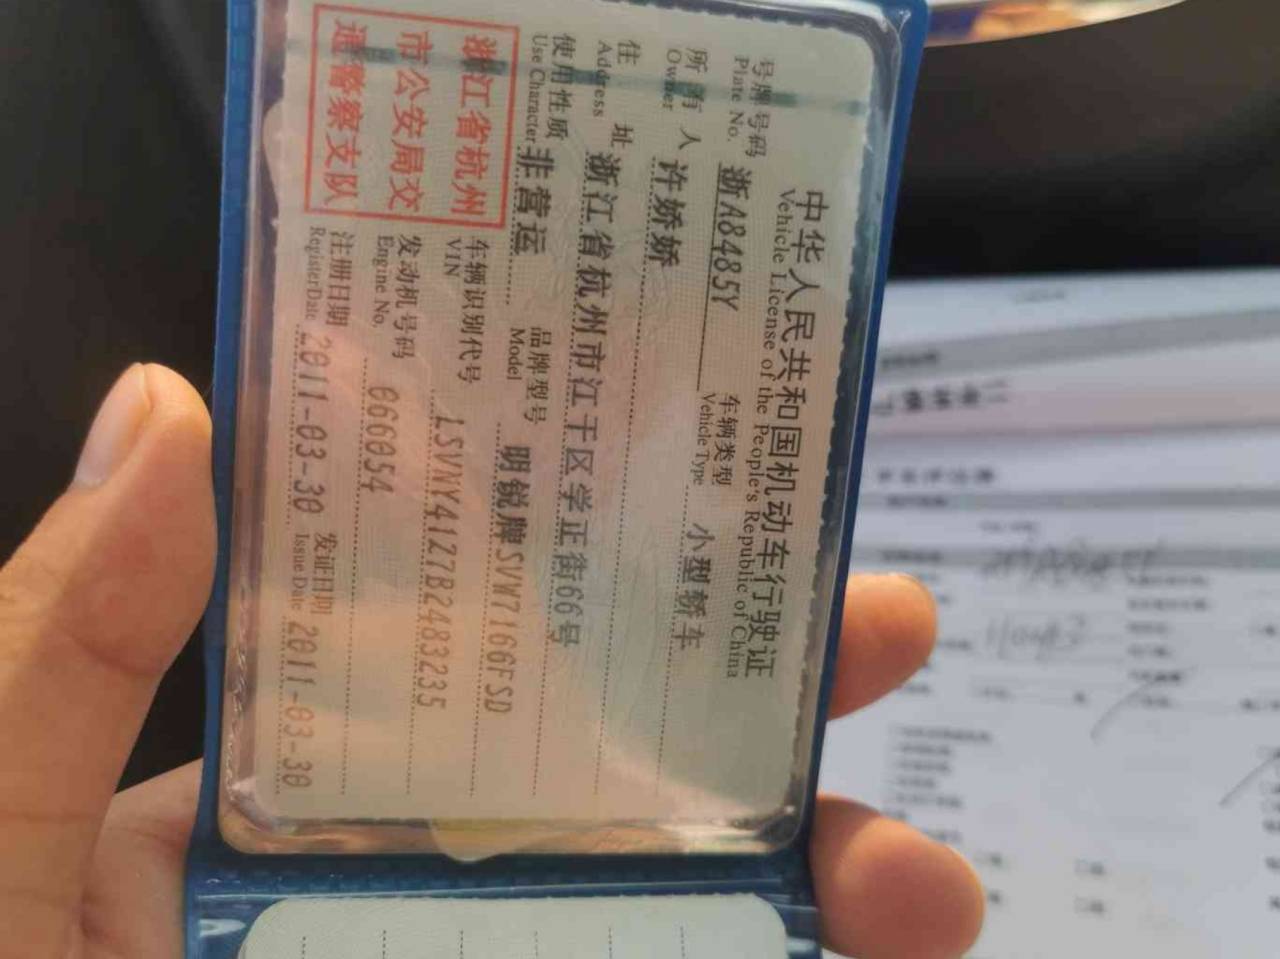 中华人民共和国机动车行驶证
Vehicle License of the People's Republic of China
号牌号码 浙A8485Y 车辆类型 小型轿车
Plate No. Vehicle Type
所有人 许娇娇
Owner
住址 浙江省杭州市江干区学正街66号
Address
使用性质 非营运 品牌型号 明锐牌SVW7166FSD
Use Character Model
浙江省杭州
市公安局交
通警察支队
车辆识别代号 LSVNY41Z7B2483235
VIN
发动机号码 066054
Engine No.
注册日期 2011-03-30 发证日期 2011-03-30
Register Date Issue Date